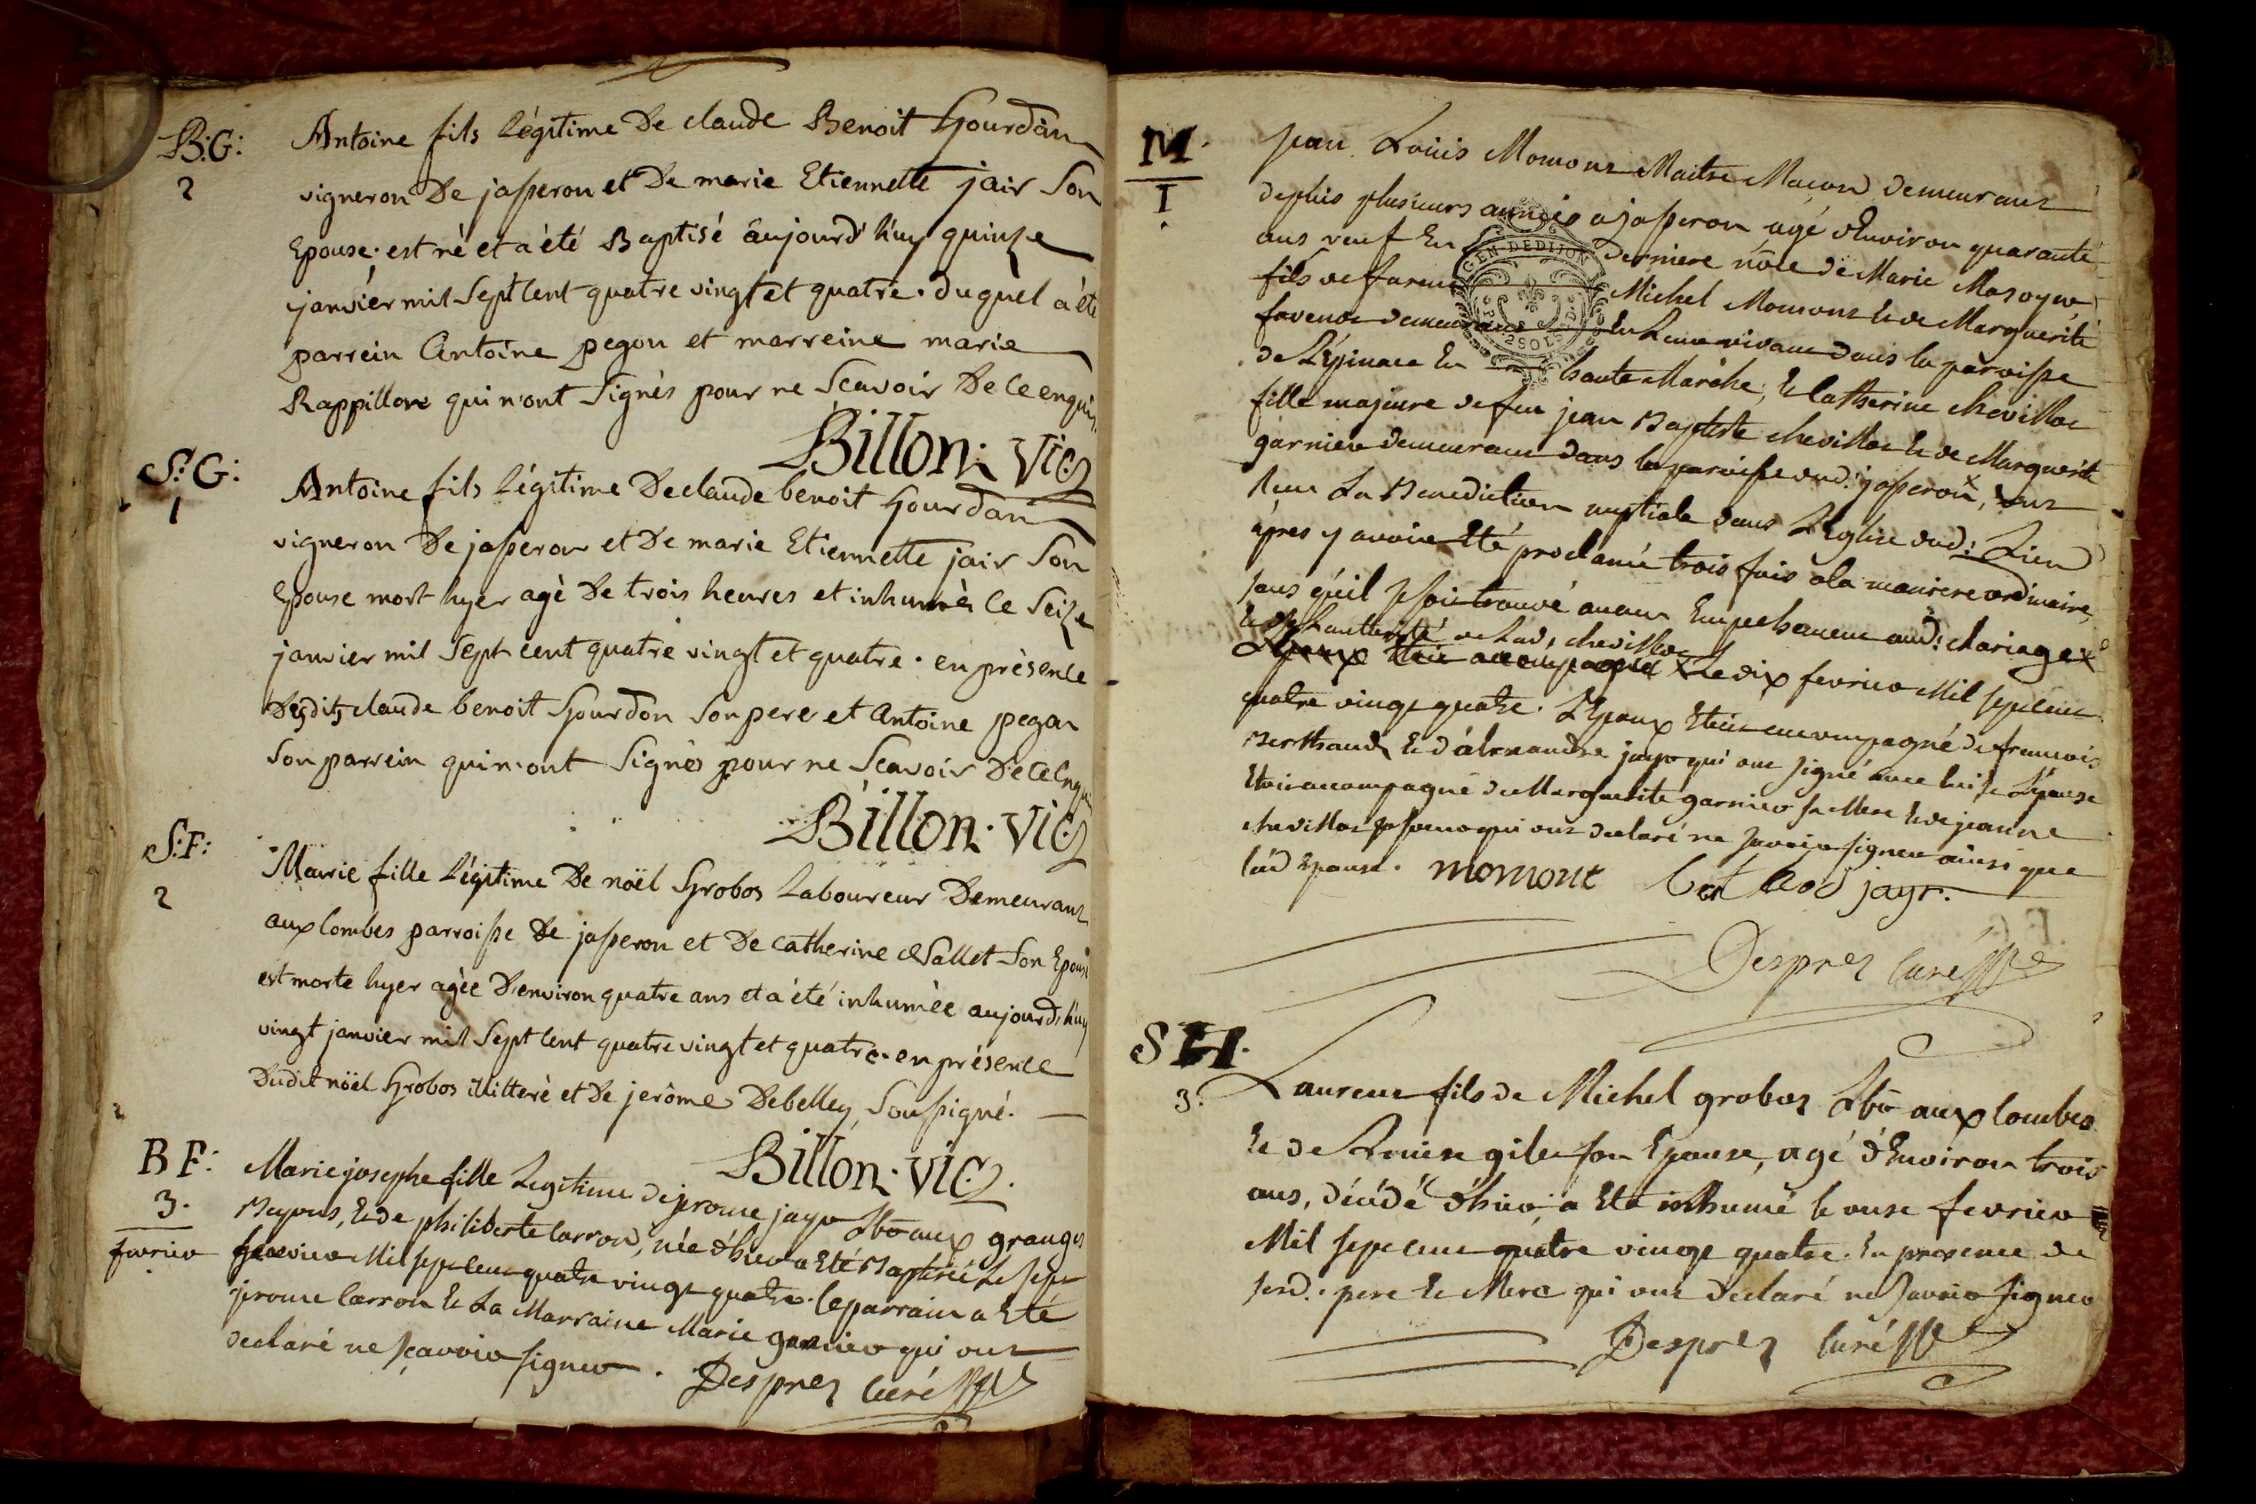 B:G:
2
Antoine fils légitime De claude Benoit Gourdan
vigneron De jasseron et De marie Etiennette jair Son
Epouse. est nè et a été Baptisé aujourd'huy quinze
janvier mil Sept Cent quatre vingt et quatre. duquel a été
parrein Antoine pegon et marreine marie
Rappillon qui n'ont Signès pour ne Scavoir De ce enquis.
Billon. Vic
S: G:
1
Antoine fils légitime De claude benoit Gourdan
vigneron De jasseron et De marie Etiennette jair Son
Epouse mort hyer agè De trois heures et inhumè Ce Seize
janvier mil Sept cent quatre vingt et quatre. en prèsence
Desdits claude benoit Gourdon Son pere et Antoine pegon
Son parrein qui n'ont Signès pour ne Scavoir De Ce Enquis
Billon. Vic
S: F:
2
Marie fille légitime De nöel Grobos Laboureur Demeurant
aux Combes parroisse De jasseron et De Catherine Sallet Son Epouse
est morte hyer agèe D'environ quatre ans et a été inhumèe aujourd'huy
vingt janvier mil Sept Cent quatre vingt et quatre. en présence
Dudit nöel Grobos illitterè et De jerôme Debelley Soussigné.
Billon. Vic.
B F:
3.
fevrier
Marie josephe fille Legitime de jrome jayr Lbr aux granges
Mayons, et de philiberte Carron, née d'hier a Eté Baptisée Le sept
fevrier Mil sept Cent quatre vingt quatre. le parrain a Eté
jrome Carron et La Marraine Marie garnier qui ont
declaré ne sçavoir signer.
Desprez Curé
M.
I
GEN. DE DIJON
2 SOLS
Jean Louis Momont Maitre Maçon demeurant
depuis plusieurs années a jasseron agé d'Environ quarante
ans veuf En derniere nôce de Marie Mazoyer
fils de Michel Momont et de Marguerite
demeurant En Leur vivant dans la paroisse
de Lépinace En haute Marche, et Catherine chevillot
fille majeure de feu jean Baptiste chevillot et de Marguerite
garnier demeurant dans la paroisse dud: jasseron, ont
Reçu La Benediction nuptiale dans L'Eglise dud: Lieu
apres y avoir Eté proclamé trois fois a la maniere ordinaire,
sans qu'il se soit trouvé aucun Empechement aud: Mariage
de Lad: chevillot
Le dix fevrier Mil sept Cent
quatre vingt quatre. L'Epoux Etoit accompagné de francois
Berthaud, et d'alexandre jayr qui ont signé avec lui, L'Epouse
Etoit accompagné de Marguerite garnier sa Mere et de jeanne
chevillot sa soeur qui ont declaré ne savoir signer ainsi que
lad Epouse. momont jayr.
Desprez Curé
S H.
3.
Laurent fils de Michel groboz Lbr aux Combes
et de Louise gilet son Epouse, agé d'Environ trois
ans, décédé d'hier a Eté inhumé le onze fevrier
Mil sept cent quatre vingt quatre. En presence de
sesd. pere et Mere qui ont declaré ne savoir signer
Desprez Curé